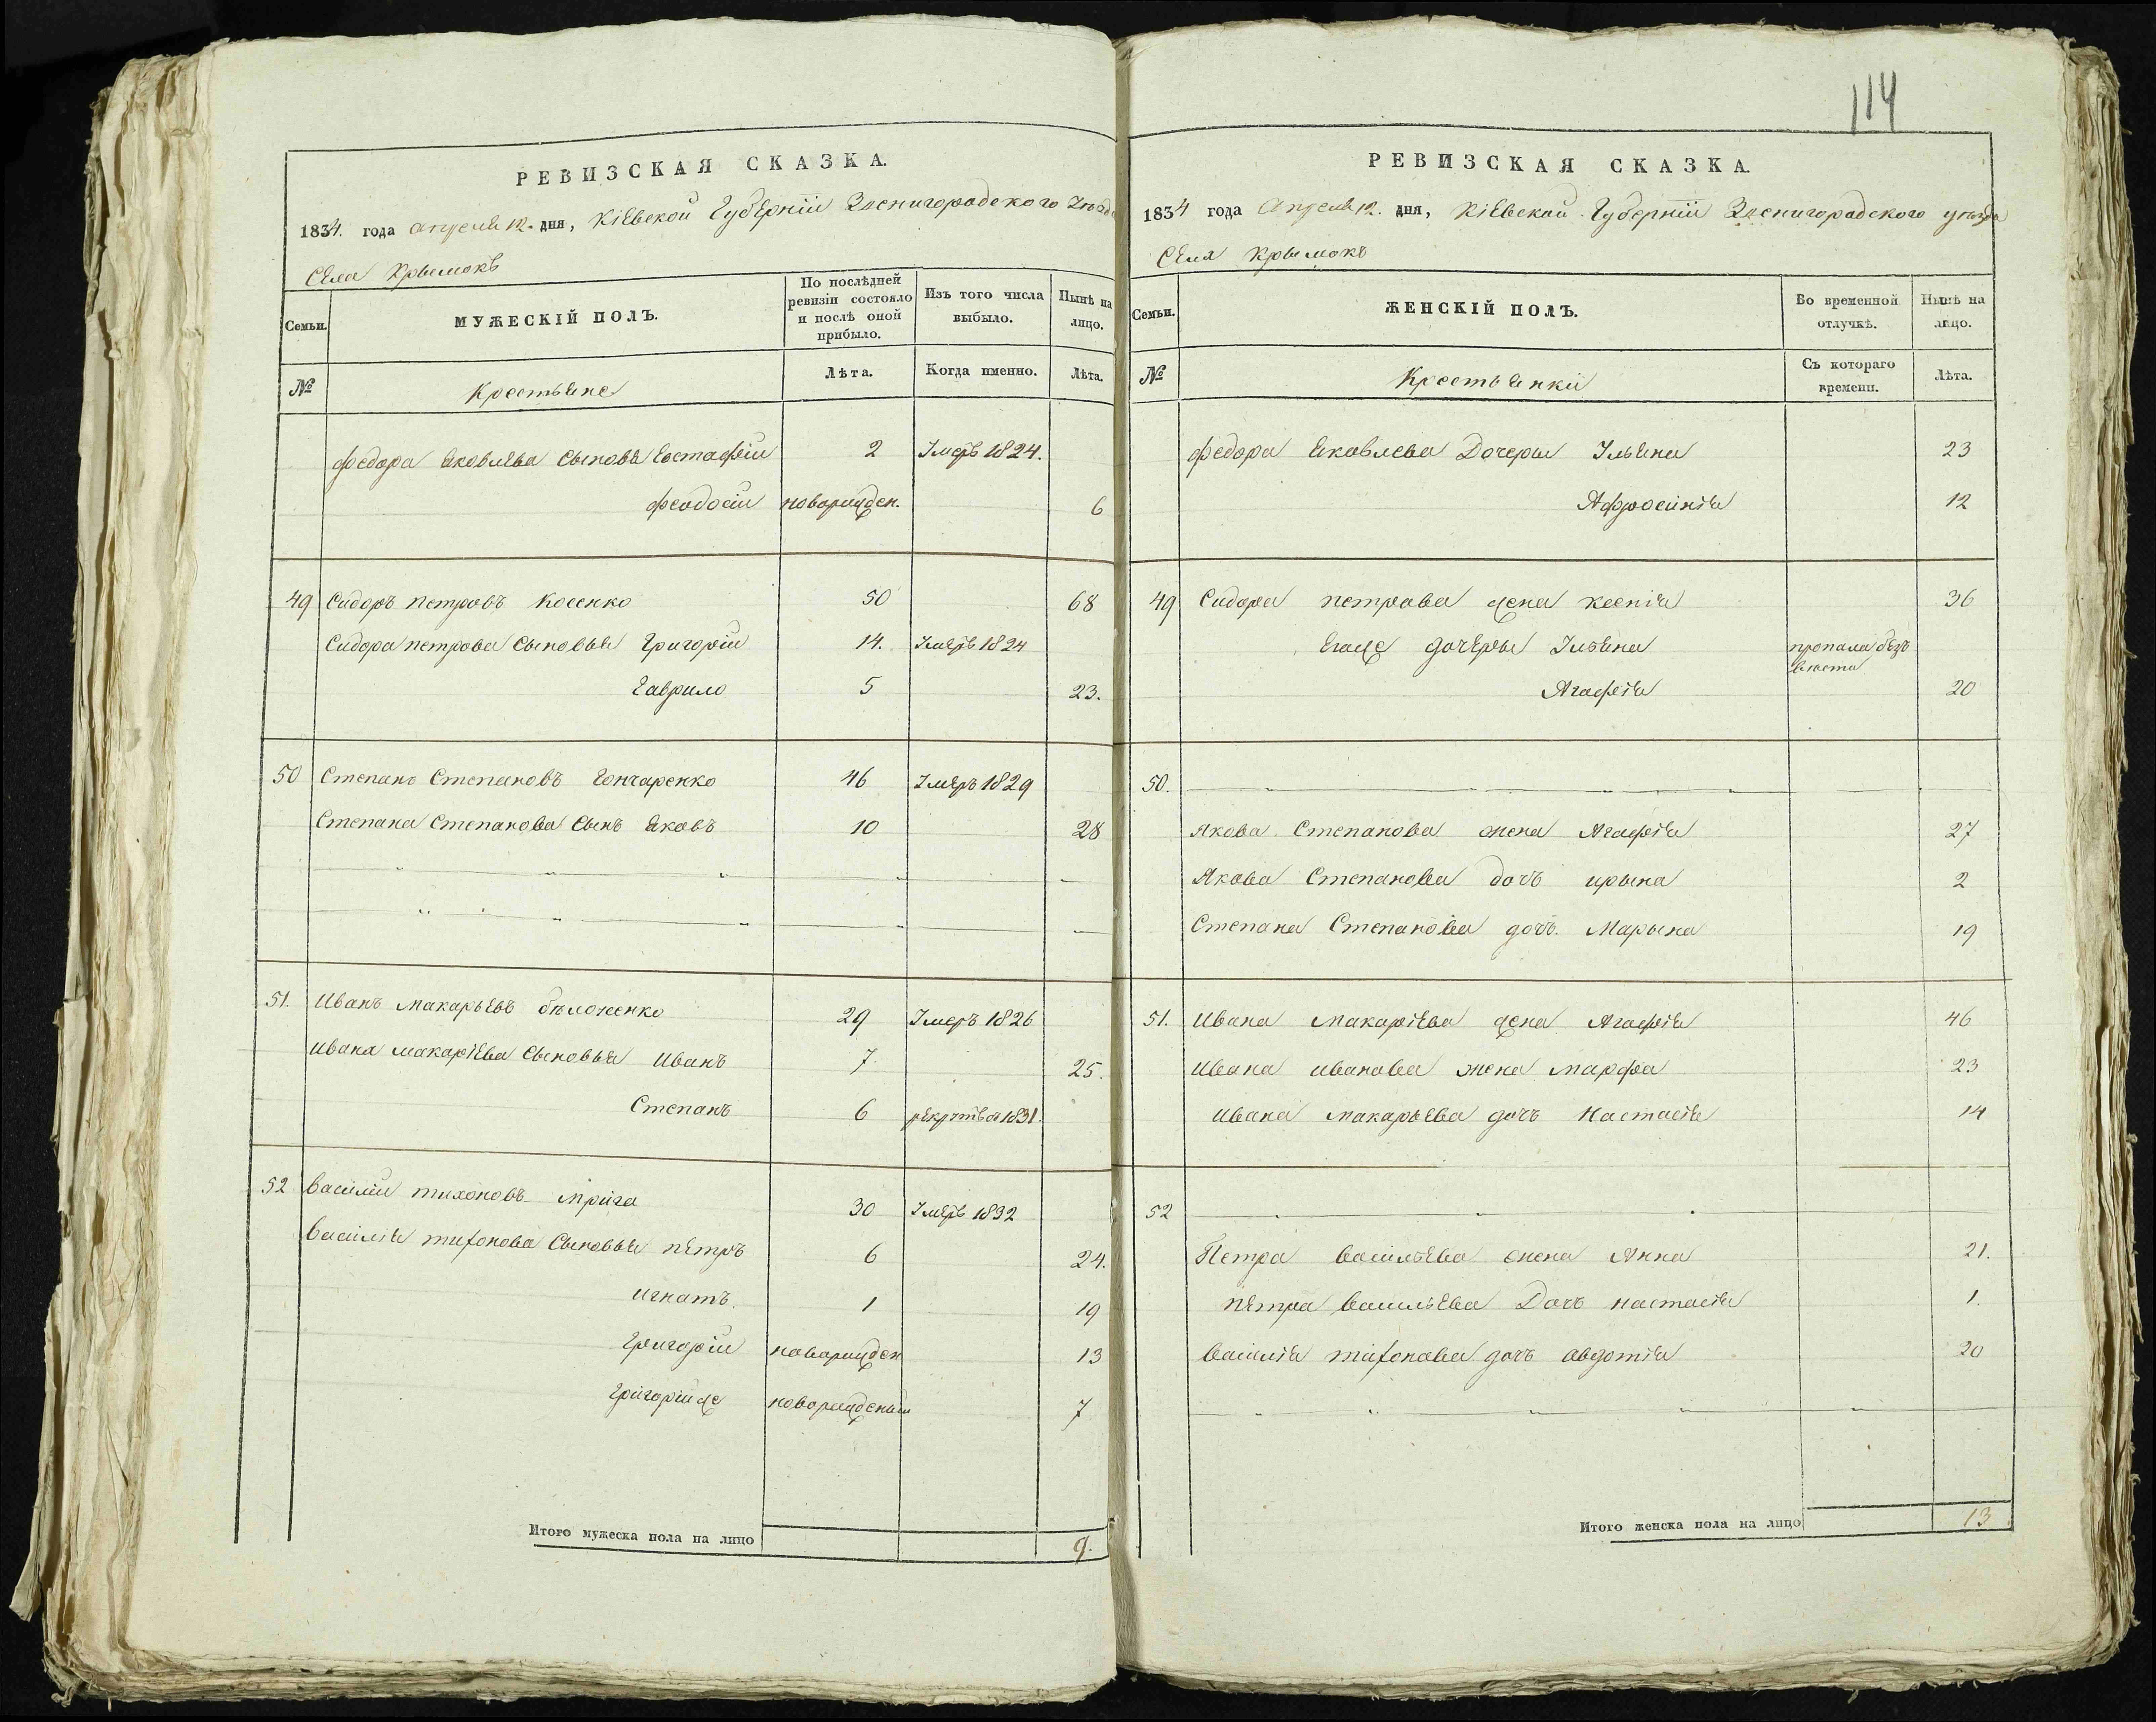 РЕВИЗСКАЯ СКАЗКА.
1834. года апреля 12. дня, Кіевской Губерніи Звенигородского Уезда
Села Крымокъ
Семьи.
МУЖЕСКІЙ ПОЛЪ.
По послѣдней ревизіи состояло и послѣ оной прибыло.
Изъ того числа выбыло.
Нынѣ на лицо.
№
Крестьяне
Лѣта.
Когда именно.
Лѣта.
Федора Яковлева сыновья Евстафій 2 Умеръ 1824.
Феодосій новорожден. 6
49 Сидоръ Петровъ Косенко 50 68
Сидора Петрова сыновья Григорій 14. Умеръ 1824
Гаврило 5 23.
50 Степанъ Степановъ Гончаренко 46 Умеръ 1829
Степана Степанова сынъ Яковъ 10 28
51. Иванъ Макарьевъ 29 Умеръ 1826
Ивана Макаріева сыновья Иванъ 7. 25.
Степанъ 6 рекрутъ в 1831.
52 Василій Тихоновъ Мрига 30 Умеръ 1832
Василія Тихонова сыновья Петръ 6 24.
Игнатъ. 1 19
Григорій новорожден 13
Григорій же новорожденый 7
Итого мужеска пола на лицо 9.
114
РЕВИЗСКАЯ СКАЗКА.
1834 года Апреля 12. дня, Кіевской Губерніи Звенигородского уезда
Села Крымокъ
Семьи.
ЖЕНСКІЙ ПОЛЪ.
Во временной отлучкѣ.
Нынѣ на лицо.
№
Крестьянки
Съ котораго времени.
Лѣта.
Федора Яковлева Дочеры Ульяна 23
Афросинія 12
49 Сидора Петрова жена Ксенія 36
Егоже дочеры Ульяна пропала безъ
вести
Агафія 20
50.
Якова Степанова жена Агафія 27
Якова Степанова дочъ Ирына 2
Степана Степанова дочъ. Марына 19
51. Ивана Макаріева жена Агафія 46
Ивана Иванова жена Марфа 23
Ивана Макарьева дочъ Настасія 14
52
Петра Васильева жена Анна 21.
Петра Васильева Дочъ Настасія 1.
Василія Тихонова дочъ Авдотія 20
Итого женска пола на лицо 13